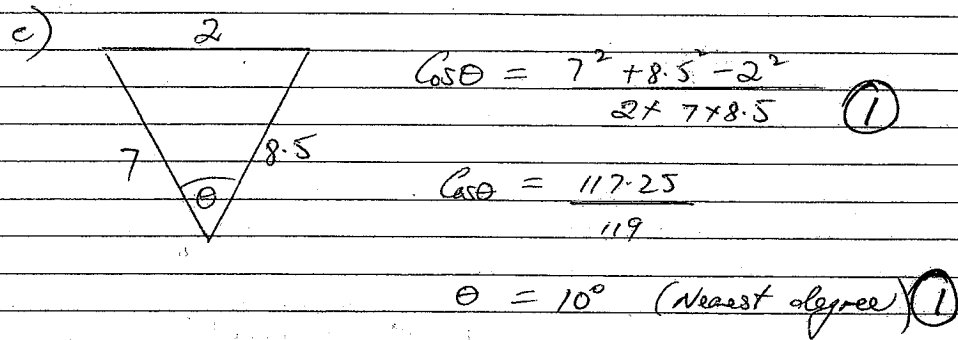 c)
2
7
8.5
θ
Cosθ = 7² + 8.5² - 2² / 2 × 7 × 8.5 ①
Cosθ = 117.25 / 119
θ = 10° (Nearest degree) ①